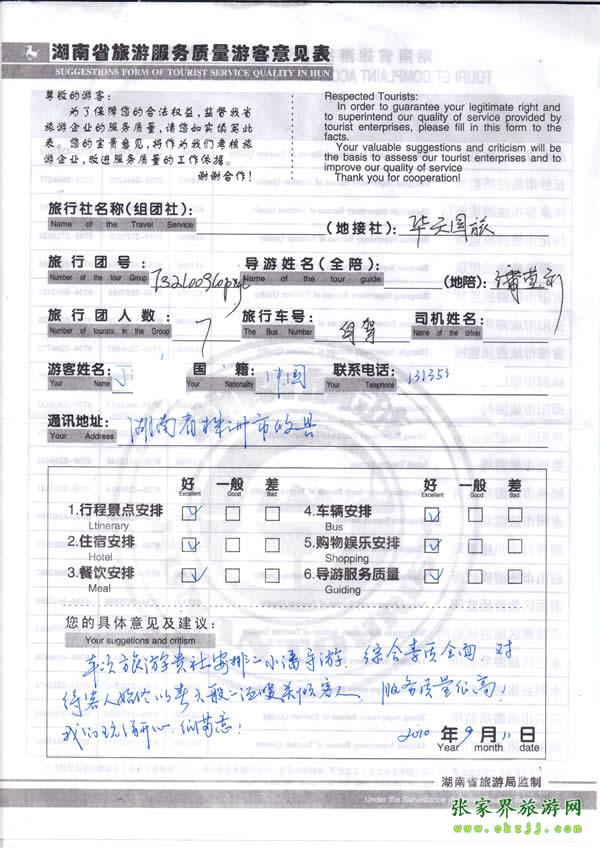 湖南省旅游服务质量游客意见表
SUGGESTIONS FORM OF TOURIST SERVICE QUALITY IN HUN
尊敬的游客：
为了保障您的合法权益，监督我省
旅游企业的服务质量，请您如实填写此
表。您的宝贵意见，将作为我们考核旅
游企业，改进服务质量的工作依据。
谢谢合作！
Respected Tourists:
In order to guarantee your legitimate right and
to superintend our quality of service provided by
tourist enterprises, please fill in this form to the
facts.
Your valuable suggestions and criticism will be
the basis to assess our tourist enterprises and to
improve our quality of service
Thank you for cooperation!
旅行社名称(组团社)： (地接社)： 华天国旅
Name of the Travel Service
旅行团号： 导游姓名(全陪)： (地陪)：
Number of the tour Group Name of the tour guide
旅行团人数： 7 旅行车号： 自驾 司机姓名：
Number of tourists in the Group The Bus Number Name of the driver
游客姓名： 国籍： 中国 联系电话： 131353
Your Name Your Nationality Your Telephone
通讯地址： 湖南省株洲市攸县
Your Address
好 一般 差 好 一般 差
Excellent Good Bad Excellent Good Bad
1.行程景点安排 4.车辆安排
Ltinerary Bus
2.住宿安排 5.购物娱乐安排
Hotel Shopping
3.餐饮安排 6.导游服务质量
Meal Guiding
您的具体意见及建议：
Your suggetions and critism
旅游贵社安排小潘导游，综合素质全面，对
待客人始终以春天般温暖 客人，服务质量 高！
我们玩得开心， 满意！
2010 年 9 月 11 日
Year month date
湖南省旅游局监制
Under the Surveillance
张家界旅游网
www.okzjj.com